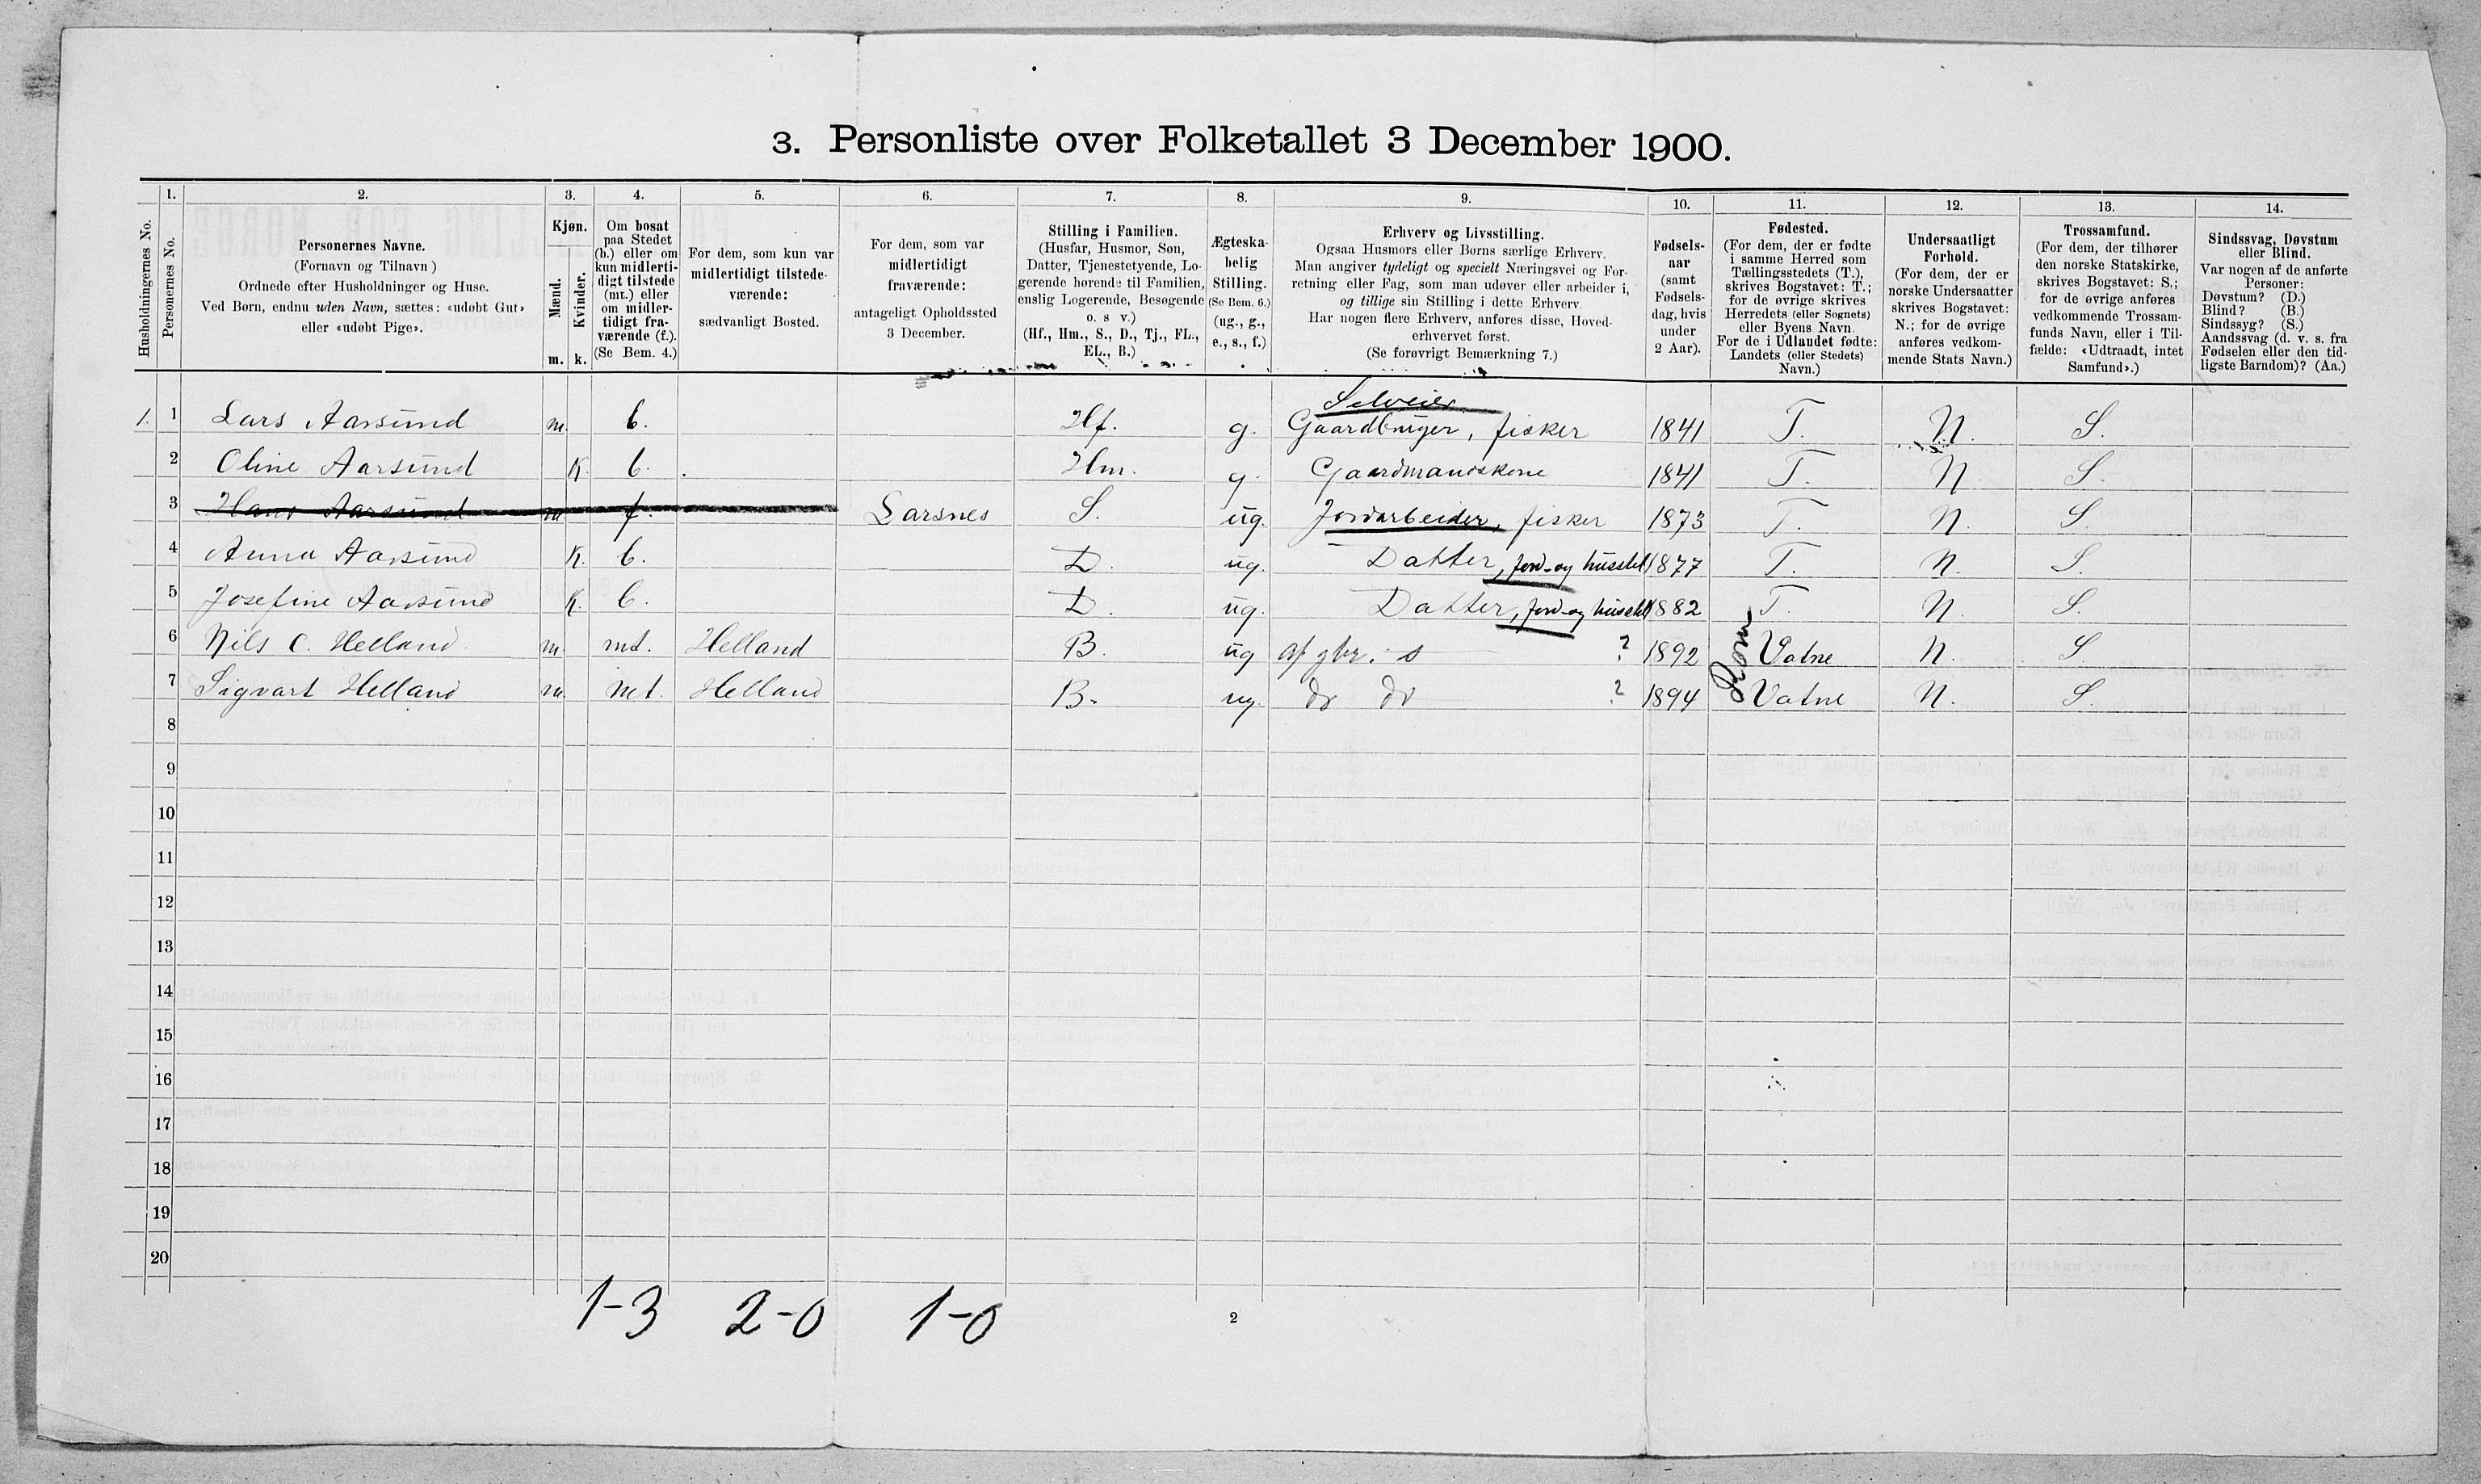 3. Personliste over Folketallet 3 December 1900.
Husholdningernes No.
1.
Personernes No.
2.
Personernes Navne.
(Fornavn og Tilnavn)
Ordnede efter Husholdninger og Huse.
Ved Børn, endnu uden Navn, sættes: «udøbt Gut»
eller «udøbt Pige».
3.
Kjøn.
Mænd.
Kvinder.
m. k.
4.
Om bosat
paa Stedet
(b.) eller om
kun midlerti-
digt tilstede
(mt.) eller
om midler-
tidigt fra-
værende (f.).
(Se Bem. 4.)
5.
For dem, som kun var
midlertidigt tilstede-
værende:
sædvanligt Bosted.
6.
For dem, som var
midlertidigt
fraværende:
antageligt Opholdssted
3 December.
7.
Stilling i Familien.
(Husfar, Husmor, Søn,
Datter, Tjenestetyende, Lo-
gerende hørende til Familien,
enslig Logerende, Besøgende
o. s v.)
(Hf., Hm., S., D., Tj., FL.,
EL., B.)
8.
Ægteska-
belig
Stilling.
(Se Bem. 6.)
(ug., g.,
e., s., f.)
9.
Erhverv og Livsstilling.
Ogsaa Husmors eller Børns særlige Erhverv.
Man angiver tydeligt og specielt Næringsvei og For-
retning eller Fag, som man udøver eller arbeider i,
og tillige sin Stilling i dette Erhverv.
Har nogen flere Erhverv, anføres disse, Hoved-
erhvervet først.
(Se forøvrigt Bemærkning 7.)
10.
Fødsels-
aar
(samt
Fødsels-
dag, hvis
under
2 Aar).
11.
Fødested.
(For dem, der er fødte
i samme Herred som
Tællingsstedets (T.),
skrives Bogstavet: T.;
for de øvrige skrives
Herredets (eller Sognets)
eller Byens Navn.
For de i Udlandet fødte:
Landets (eller Stedets)
Navn.)
12.
Undersaatligt
Forhold.
(For dem, der er
norske Undersaatter
skrives Bogstavet:
N.; for de øvrige
anføres vedkom-
mende Stats Navn.)
13.
Trossamfund.
(For dem, der tilhører
den norske Statskirke,
skrives Bogstavet: S.;
for de øvrige anføres
vedkommende Trossam-
funds Navn, eller i Til-
fælde: «Udtraadt, intet
Samfund».)
14.
Sindssvag, Døvstum
eller Blind.
Var nogen af de anførte
Personer:
Døvstum? (D.)
Blind? (B.)
Sindssyg? (S.)
Aandssvag (d. v. s. fra
Fødselen eller den tid-
ligste Barndom)? (Aa.)
Selveier
1. 1 Lars Aarsund m. b. Hf. g. Gaardbruger, fisker 1841 T. N. S.
2 Oline Aarsund K. b. Hm. g. Gaardmandskone 1841 T. N. S.
3 Hans Aarsund m f. Larsnes S. ug. Jordarbeider, fisker 1873 T. N. S.
4 Anna Aarsund K. b. D. ug. Datter, jord- og husstel 1877 T. N. S.
5 Josefine Aarsund K. b. D. ug. Datter, jord- og husstel 1882 T. N. S.
6 Nils C. Helland m. mt. Helland B. ug af gbr. s ? 1892 Vatne N. S.
7 Sigvart Helland m. mt. Helland B. ug. do do ? 1894 Vatne N. S.
8
9
10
11
12
13
14
15
16
17
18
19
20
1-3 2-0 1-0
2